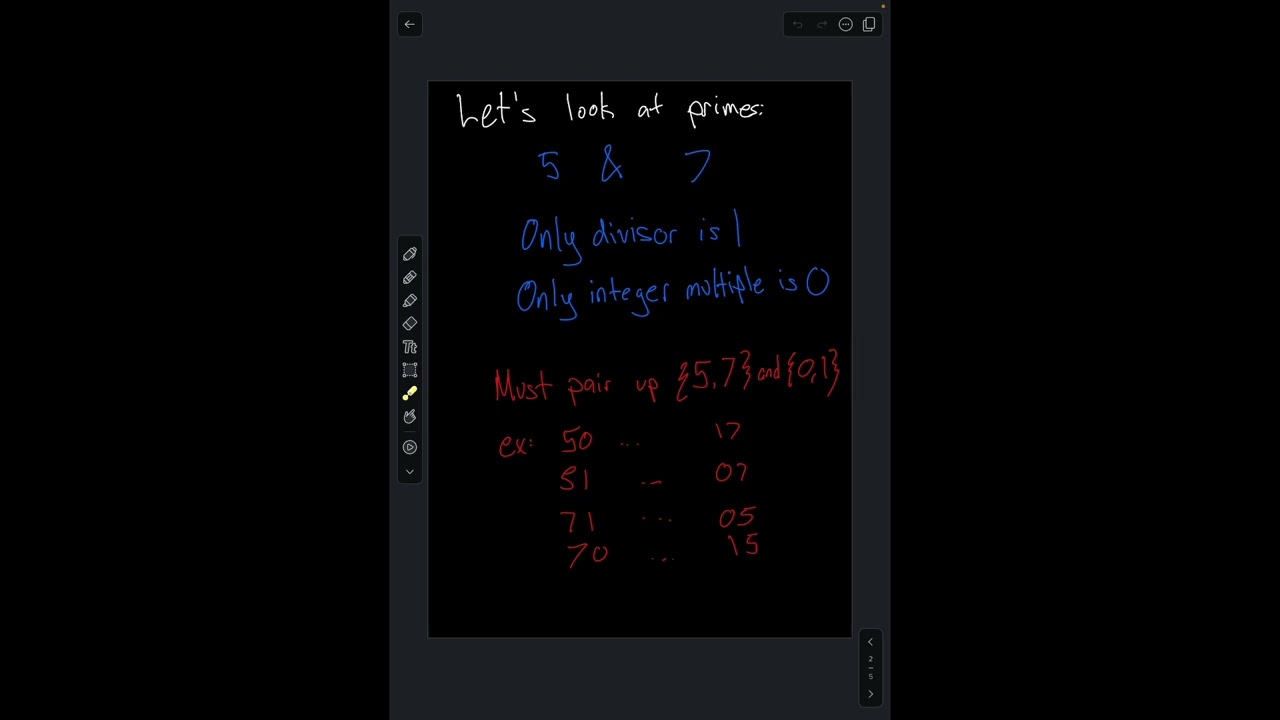 Let's look at primes:
5 & 7
Only divisor is 1
Only integer multiple is 0
Must pair up {5,7} and {0,1}
ex: 50 ... 17
51 ... 07
71 ... 05
70 ... 15
Tt
2
5